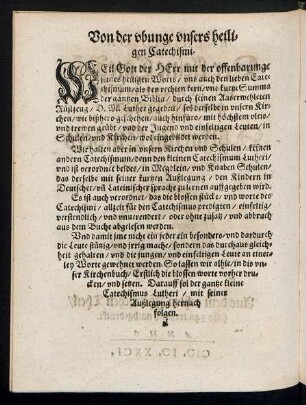 Von der vbunge vnsers heili-
gen Catechismi.
WEil Gott der HErr mit der offenbarunge
seines heiligen Worts / vns auch den lieben Cate-
chismum / als den rechten kern / vnd kurtze Summa
der gantzen Biblia / durch seinen Außerwehleten
Rüstzeug / D. M. Luther gegeben / sol derselbe in vnsern Kir-
chen / wie bißhero geschehen / auch hinfüro / mit höchstem vleis /
vnd trewen geübt / vnd der Jugend vnd einfeltigen Leuten / in
Schulen / vnd Kirchen / wol eingebildet werden.
Wir halten aber in vnsern Kirchen vnd Schulen / keinen
andern Catechismum / denn den kleinen Catechismum Lutheri /
vnd ist verordnet beides / in Megdlein / vnd Knaben Schulen /
das derselbe mit seiner kurtzen Außlegung / den Kindern in
Deutscher / vnd Lateinischer sprache zu lernen auffgegeben wird.
Es ist auch verordnet / das die blossen stücke / vnd worte des
Catechismi / allzeit für den Catechismus predigten / einfeltig /
verstendlich / vnd vnuerendert / oder ohne zusatz / vnd abbruch
aus dem Buche abgelesen werden.
Vnd damit jme nicht ein jeder ein besonders / vnd dardurch
die Leute stutzig / vnd jrrig mache / sondern das durchaus gleich-
heit gehalten / vnd die jungen / vnd einfeltigen Leute an einer-
ley Worte gewehnet werden. So lassen wir alhie / in des vn-
ser Kirchenbuch / Erstlich die blossen worte vorher dru-
cken / vnd setzen. Darauff sol der gantze kleine
Catechismus Lutheri / mit seiner
Außlegung hernach
folgen.